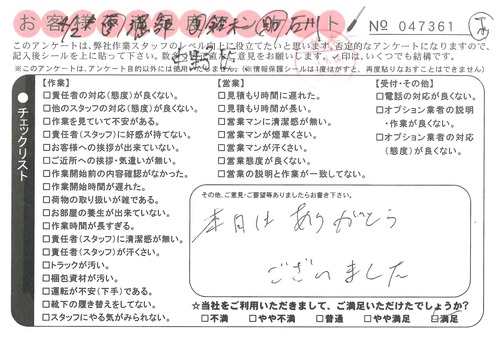 お客様
№ 047361
このアンケートは、弊社作業スタッフのレベル向上に役立てたいと思います。否定的なアンケートになりますので、
記入後シールを上に貼って下さい。
直
意見をお願いします。✓印は、いくつでも結構です。
※このアンケートは、アンケート目的以外には使用
(※情報保護シールは1度はがすと、再度貼りなおすことはできません)
チェックリスト
【作業】
□責任者の対応(態度)が良くない。
□他のスタッフの対応(態度)が良くない。
□作業を見ていて不安がある。
□責任者(スタッフ)に好感が持てない。
□お客様への挨拶が出来ていない。
□ご近所への挨拶・気遣いが無い。
□作業開始前の内容確認がなかった。
□作業開始時間が遅れた。
□荷物の取り扱いが雑である。
□お部屋の養生が出来ていない。
□作業時間が長すぎる。
□責任者(スタッフ)に清潔感が無い。
□責任者(スタッフ)が汗くさい。
□トラックが汚い。
□梱包資材が汚い。
□運転が不安(下手)である。
□靴下の履き替えをしてない。
□スタッフにやる気がみられない。
【営業】
□見積もり時間に遅れた。
□見積もり時間が長い。
□営業マンに清潔感が無い。
□営業マンが煙草くさい。
□営業マンが汗くさい。
□営業態度が良くない。
□営業の説明と作業が一致してない。
【受付・その他】
□電話の対応が良くない。
□オプション業者の説明
・作業が良くない。
□オプション業者の対応
(態度)が良くない。
その他、ご意見・ご要望等ありましたらお書き下さい。
本日は ありがとう
ございました
☆当社をご利用いただきまして、ご満足いただけたでしょうか?
□不満 □やや不満 □普通 □やや満足 □満足